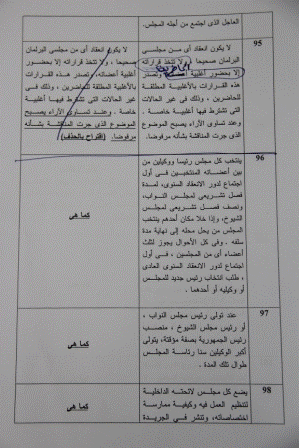 العاجل الذى اجتمع من أجله المجلس.
95
لا يكون انعقاد أى من مجلسى
البرلمان صحيحا ، ولا تتخذ قراراته
إلا بحضور أغلبية أعضائه وتصدر
هذه القرارات بالأغلبية المطلقة
للحاضرين ، وذلك فى غير الحالات
التى تشترط فيها أغلبية خاصة .
وعند تساوى الأراء يصبح الموضوع
الذى جرت المناقشة بشأنه مرفوضا.
لا يكون انعقاد أى من مجلسى البرلمان
صحيحا ، ولا تتخذ قراراته إلا بحضور
أغلبية أعضائه، وتصدر هذه القرارات
بالأغلبية المطلقة للحاضرين ، وذلك فى
غير الحالات التى تشترط فيها أغلبية
خاصة . وعند تساوى الأراء يصبح
الموضوع الذى جرت المناقشة بشأنه
مرفوضا. (اقتراح بالحذف)
96
ينتخب كل مجلس رئيسا ووكيلين من
بين أعضائه المنتخبين فى أول
اجتماع لدور الانعقاد السنوى، لمدة
فصل تشريعى لمجلس النواب،
ونصف فصل تشريعى لمجلس
الشيوخ، وإذا خلا مكان أحدهم ينتخب
المجلس من يحل محله إلى نهاية مدة
سلفه . وفى كل الأحوال يجوز لثلث
أعضاء أى من المجلسين، فى أول
اجتماع لدور الانعقاد السنوى العادى
، طلب انتخاب رئيس جديد للمجلس
أو وكيليه أو أحدهما .
كما هى
97
عند تولى رئيس مجلس النواب ،
أو رئيس مجلس الشيوخ ، منصب
رئيس الجمهورية بصفة مؤقتة، يتولى
أكبر الوكيلين سنا رئاسة المجلس
طوال تلك المدة .
كما هى
98
يضع كل مجلس لائحته الداخلية
لتنظيم العمل فيه وكيفية ممارسة
اختصاصاته، وتنشر فى الجريدة
كما هى